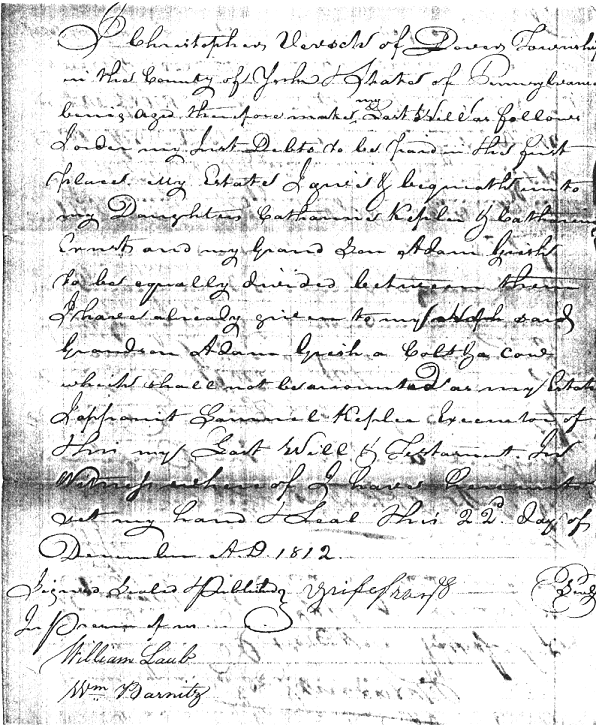 I Christopher Varich of Dover Township
in the County of York & State of Pennsylvania
being aged therefore make my Last Will as follows
I order my Just Debts to be paid in the first
place. My Estate I give & bequeath unto
my Daughters Catharine Kepler & Catharine
Ernst and my Grand Son Adam Gish
to be equally divided between them
I have already given to my said
Grandson Adam Gish a Colt & a cow
which shall not be accounted as my Estate
I appoint Samuel Kepler Executor of
this my Last Will & Testament In
Witness where of I have hereunto
set my hand & Seal this 22d day of
December A D. 1812.
Signed Sealed & Published
In Presence of us
Seal
William Laub
Wm Barnitz